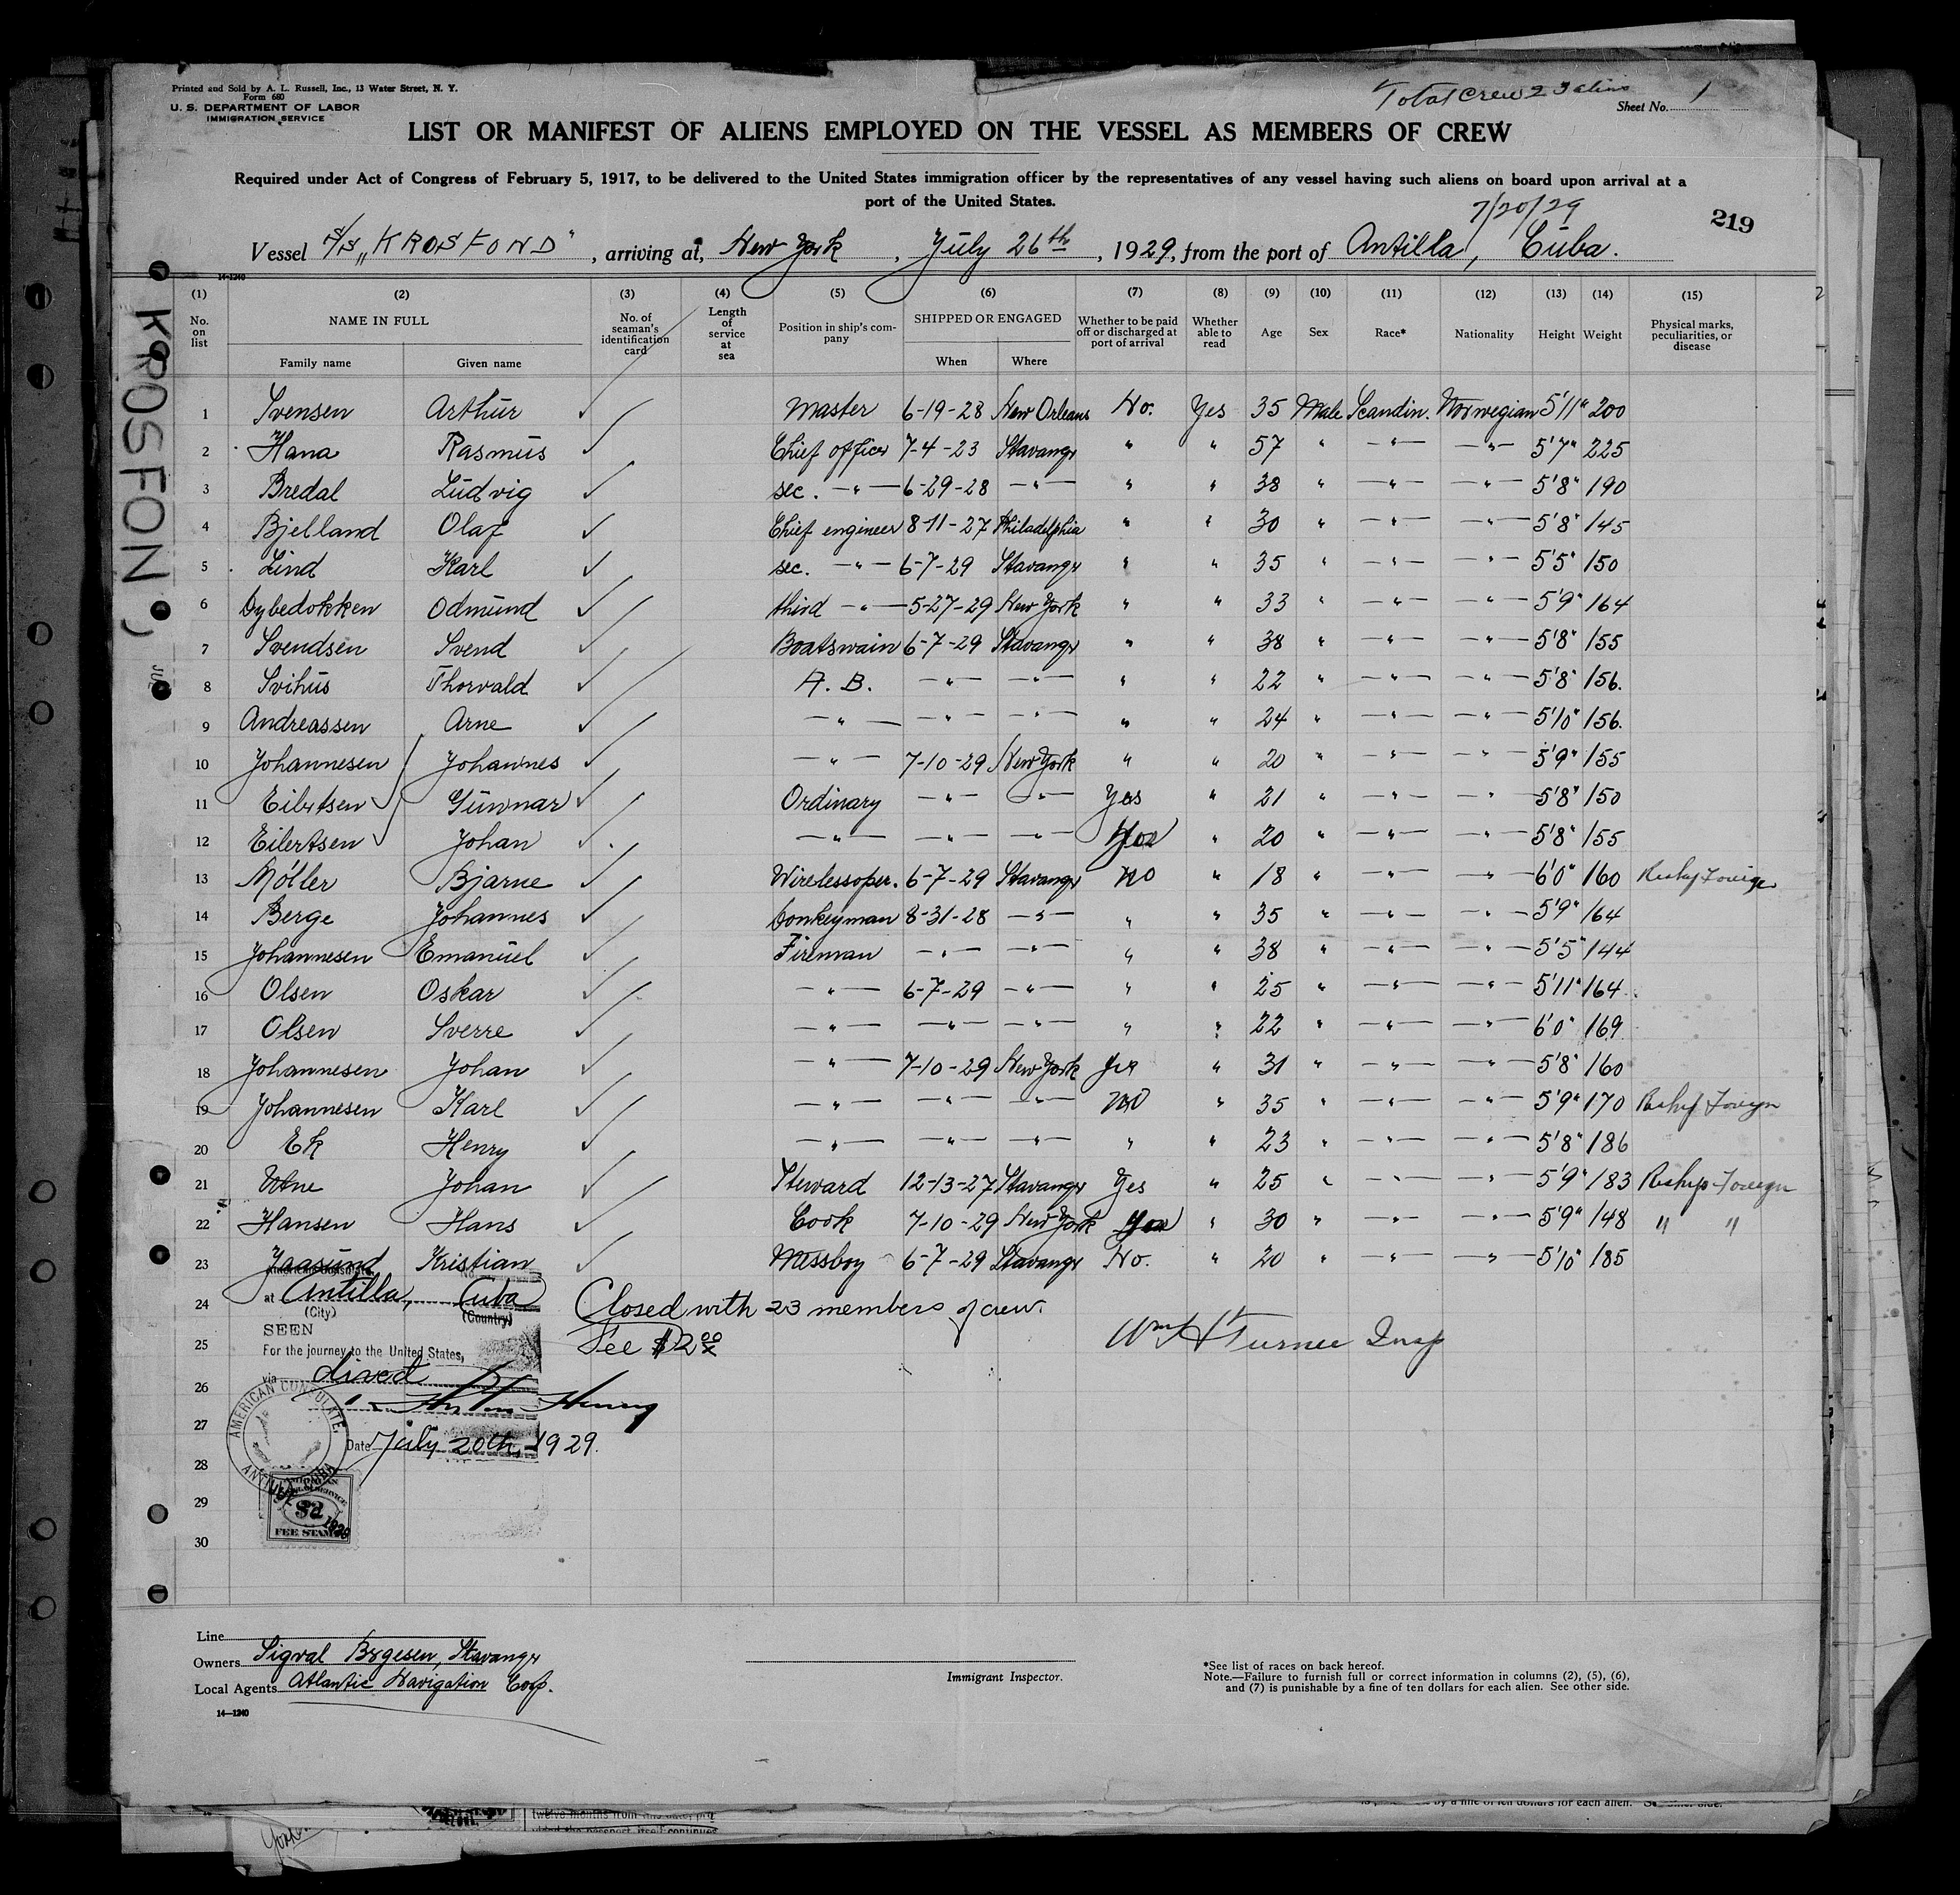 Printed and Sold by A. L. Russell, Inc., 13 Water Street, N. Y.
Form 680
U. S. DEPARTMENT OF LABOR
IMMIGRATION SERVICE
Total Crew 23 aliens
Sheet No. 1
LIST OR MANIFEST OF ALIENS EMPLOYED ON THE VESSEL AS MEMBERS OF CREW
Required under Act of Congress of February 5, 1917, to be delivered to the United States immigration officer by the representatives of any vessel having such aliens on board upon arrival at a
port of the United States.
7/20/29
219
Vessel S/S „KROSFOND", arriving at, New York, July 26th, 1929, from the port of Antilla, Cuba.
14-1240
KROSFOND
(1) (2) (3) (4) (5) (6) (7) (8) (9) (10) (11) (12) (13) (14) (15)
No. on list NAME IN FULL No. of seaman's identification card Length of service at sea Position in ship's company SHIPPED OR ENGAGED Whether to be paid off or discharged at port of arrival Whether able to read Age Sex Race* Nationality Height Weight Physical marks, peculiarities, or disease
Family name Given name When Where
1 Svensen Arthur ✓ Master 6-19-28 New Orleans No. Yes 35 Male Scandin. Norwegian 5'11" 200
2 Hana Rasmus ✓ Chief officer 7-4-23 Stavangr " " 57 " —"— —"— 5'7" 225
3 Bredal Ludvig ✓ sec. —"— 6-29-28 —"— " " 38 " —"— —"— 5'8" 190
4 Bjelland Olaf ✓ Chief engineer 8-11-27 Philadelphia " " 30 " —"— —"— 5'8" 145
5 Lind Karl ✓ sec. —"— 6-7-29 Stavangr " " 35 " —"— —"— 5'5" 150
6 Dybedokken Odmund ✓ third —"— 5-27-29 New York " " 33 " —"— —"— 5'9" 164
7 Svendsen Svend ✓ Boatswain 6-7-29 Stavangr " " 38 " —"— —"— 5'8" 155
8 Svihus Thorvald ✓ A. B. —"— —"— " " 22 " —"— —"— 5'8" 156.
9 Andreassen Arne ✓ —"— —"— —"— " " 24 " —"— —"— 5'10" 156.
10 Johannesen Johannes ✓ —"— 7-10-29 New York " " 20 " —"— —"— 5'9" 155
11 Eilertsen Gunnar ✓ Ordinary —"— —"— Yes " 21 " —"— —"— 5'8" 150
12 Eilertsen Johan ✓ —"— —"— —"— Yes " 20 " —"— —"— 5'8" 155
13 Möller Bjarne ✓ Wirelessoper. 6-7-29 Stavangr No " 18 " —"— —"— 6'0" 160 Reship Foreign
14 Berge Johannes ✓ Donkeyman 8-31-28 —"— " " 35 " —"— —"— 5'9" 164
15 Johannesen Emanuel ✓ Fireman —"— —"— " " 38 " —"— —"— 5'5" 144
16 Olsen Oskar ✓ —"— 6-7-29 —"— " " 25 " —"— —"— 5'11" 164
17 Olsen Sverre ✓ —"— —"— —"— " " 22 " —"— —"— 6'0" 169
18 Johannesen Johan ✓ —"— 7-10-29 New York Yes " 31 " —"— —"— 5'8" 160
19 Johannesen Karl ✓ —"— —"— —"— No " 35 " —"— —"— 5'9" 170 Reship Foreign
20 Ek Henry ✓ —"— —"— —"— " " 23 " —"— —"— 5'8" 186
21 Utne Johan ✓ Steward 12-13-27 Stavangr Yes " 25 " —"— —"— 5'9" 183 Reship Foreign
22 Hansen Hans ✓ Cook 7-10-29 New York Yes " 30 " —"— —"— 5'9" 148 " "
23 Jaasund Kristian ✓ Messboy 6-7-29 Stavangr No. " 20 " —"— —"— 5'10" 185
24 at Antilla, Cuba Closed with 23 members of crew.
(City) (Country)
SEEN
25 For the journey to the United States, Fee $2.00 Wm H Turner Insp
26 via direct
AMERICAN CONSULATE
ANTILLA, CUBA
27 Henry
Date July 20th, 1929.
28
29
$2
FEE STAMP
30
Line
Owners Sigval Bergesen, Stavangr
Local Agents Atlantic Navigation Corp.
14—1240
Immigrant Inspector.
*See list of races on back hereof.
Note.—Failure to furnish full or correct information in columns (2), (5), (6),
and (7) is punishable by a fine of ten dollars for each alien. See other side.